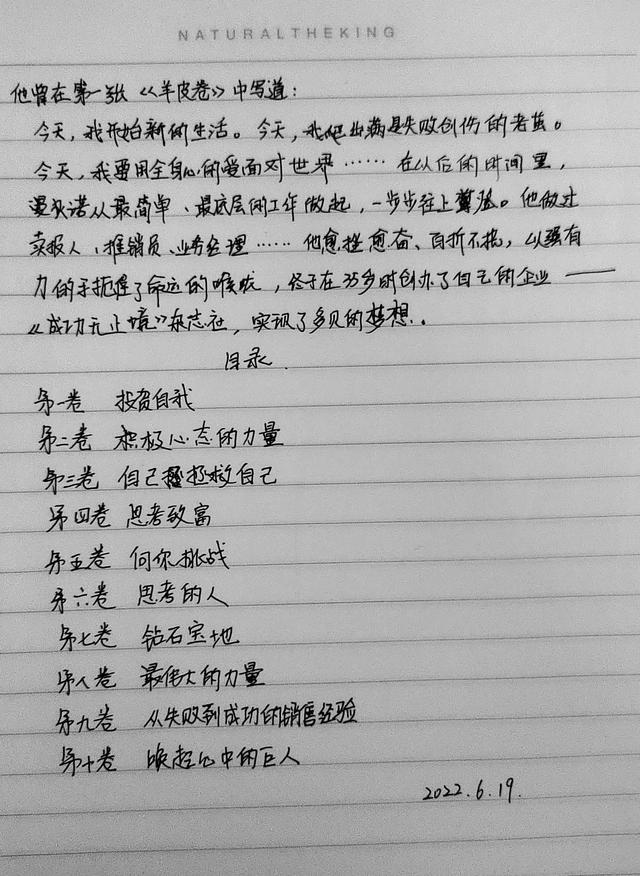 NATURALTHEKING
他曾在第一张《羊皮卷》中写道：
今天，我开始新的生活。今天，我爬出满是失败创伤的老茧。
今天，我要用全身心的爱面对世界……在以后的时间里，
承诺从最简单、最底层的工作做起，一步步往上
卖报人、推销员、业务经理……他愈挫愈奋、百折不挠，以强有
力的手扼握了命运的喉咙，终于在35岁时创办了自己的企业——
《成功无止境》杂志社，实现了多见的梦想..
目录.
第一卷 投资自我
第二卷 积极心态的力量
第三卷 自己拯救自己
第四卷 思考致富
第五卷 向你挑战
第六卷 思考的人
第七卷 钻石宝地
第八卷 最伟大的力量
第九卷 从失败到成功的销售经验
第十卷 唤起心中的巨人
2022.6.19.